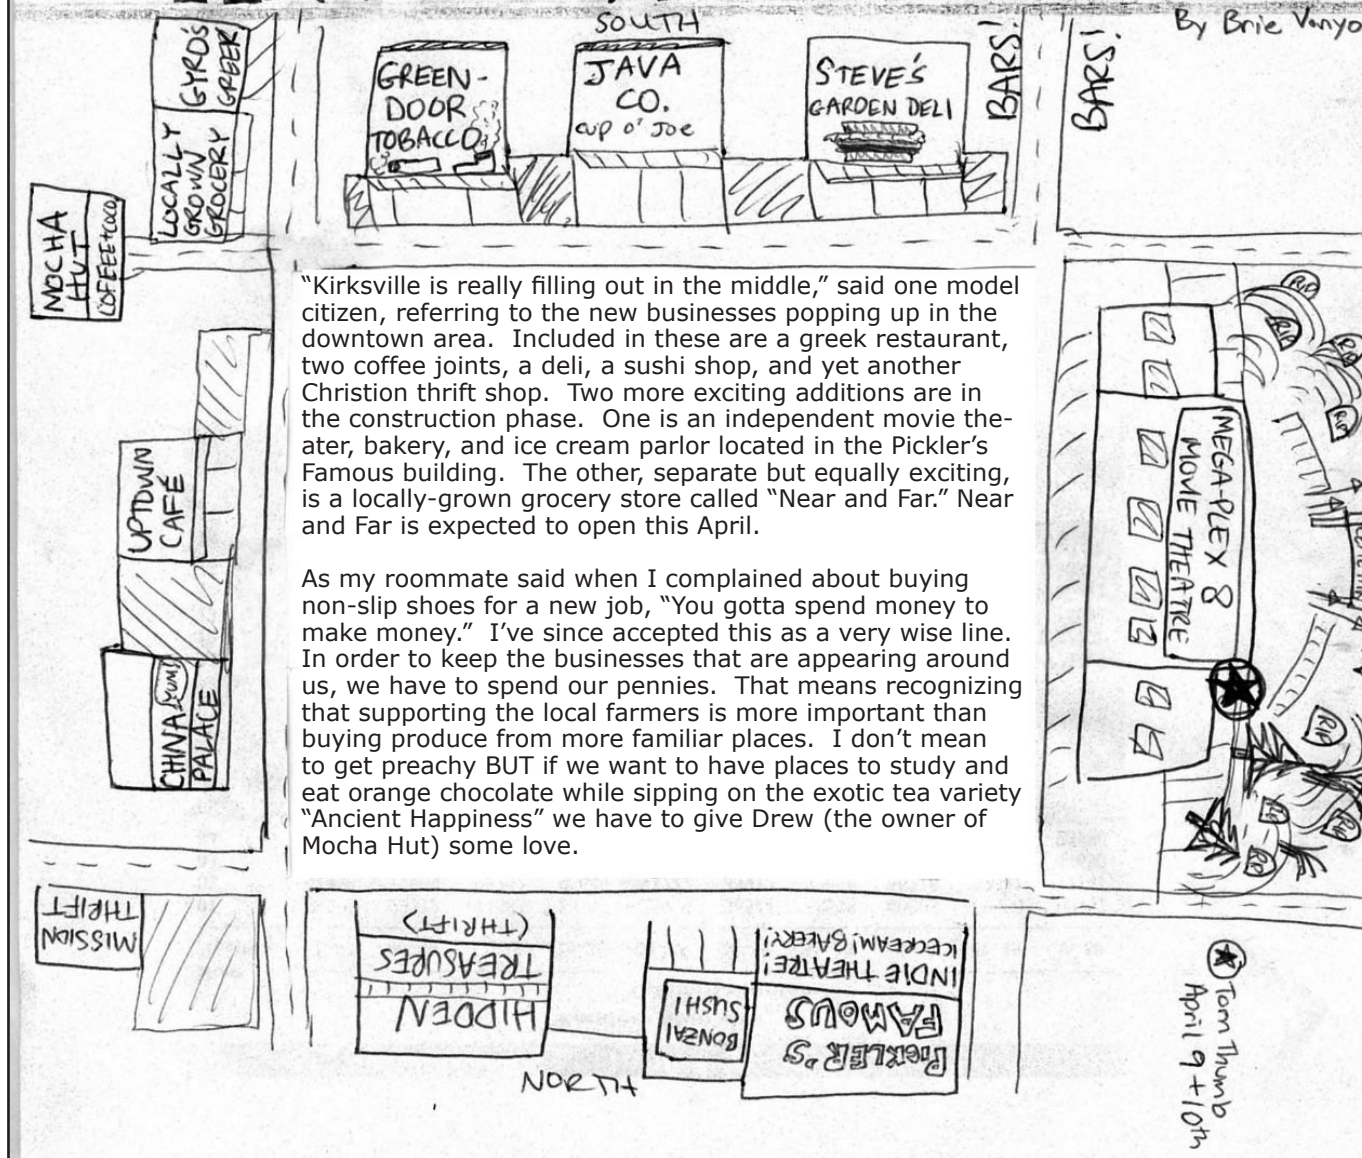 SOUTH
By Brie Vanyo
GYRO'S
GREEK
LOCALLY
GROWN
GROCERY
MOCHA
HUT
COFFEE+COCO
GREEN-
DOOR
TOBACCO
JAVA
CO.
cup o' Joe
STEVE'S
GARDEN DELI
BARS!
BARS!
“Kirksville is really filling out in the middle,” said one model
citizen, referring to the new businesses popping up in the
downtown area.  Included in these are a greek restaurant,
two coffee joints, a deli, a sushi shop, and yet another
Christion thrift shop.  Two more exciting additions are in
the construction phase.  One is an independent movie the-
ater, bakery, and ice cream parlor located in the Pickler’s
Famous building.  The other, separate but equally exciting,
is a locally-grown grocery store called “Near and Far.” Near
and Far is expected to open this April.
As my roommate said when I complained about buying
non-slip shoes for a new job, “You gotta spend money to
make money.”  I’ve since accepted this as a very wise line.
In order to keep the businesses that are appearing around
us, we have to spend our pennies.  That means recognizing
that supporting the local farmers is more important than
buying produce from more familiar places.  I don’t mean
to get preachy BUT if we want to have places to study and
eat orange chocolate while sipping on the exotic tea variety
“Ancient Happiness” we have to give Drew (the owner of
Mocha Hut) some love.
UPTOWN
CAFÉ
CHINA
yum!
PALACE
MEGA-PLEX 8
MOVIE THEATRE
RIP
RIP
RIP
RIP
RIP
RIP
RIP
MISSION
THRIFT
HIDDEN
TREASURES
(THRIFT)
BONZAI
SUSHI
PICKLER'S
FAMOUS
INDIE THEATRE!
ICECREAM! BAKERY!
NORTH
Tom Thumb
April 9 + 10th